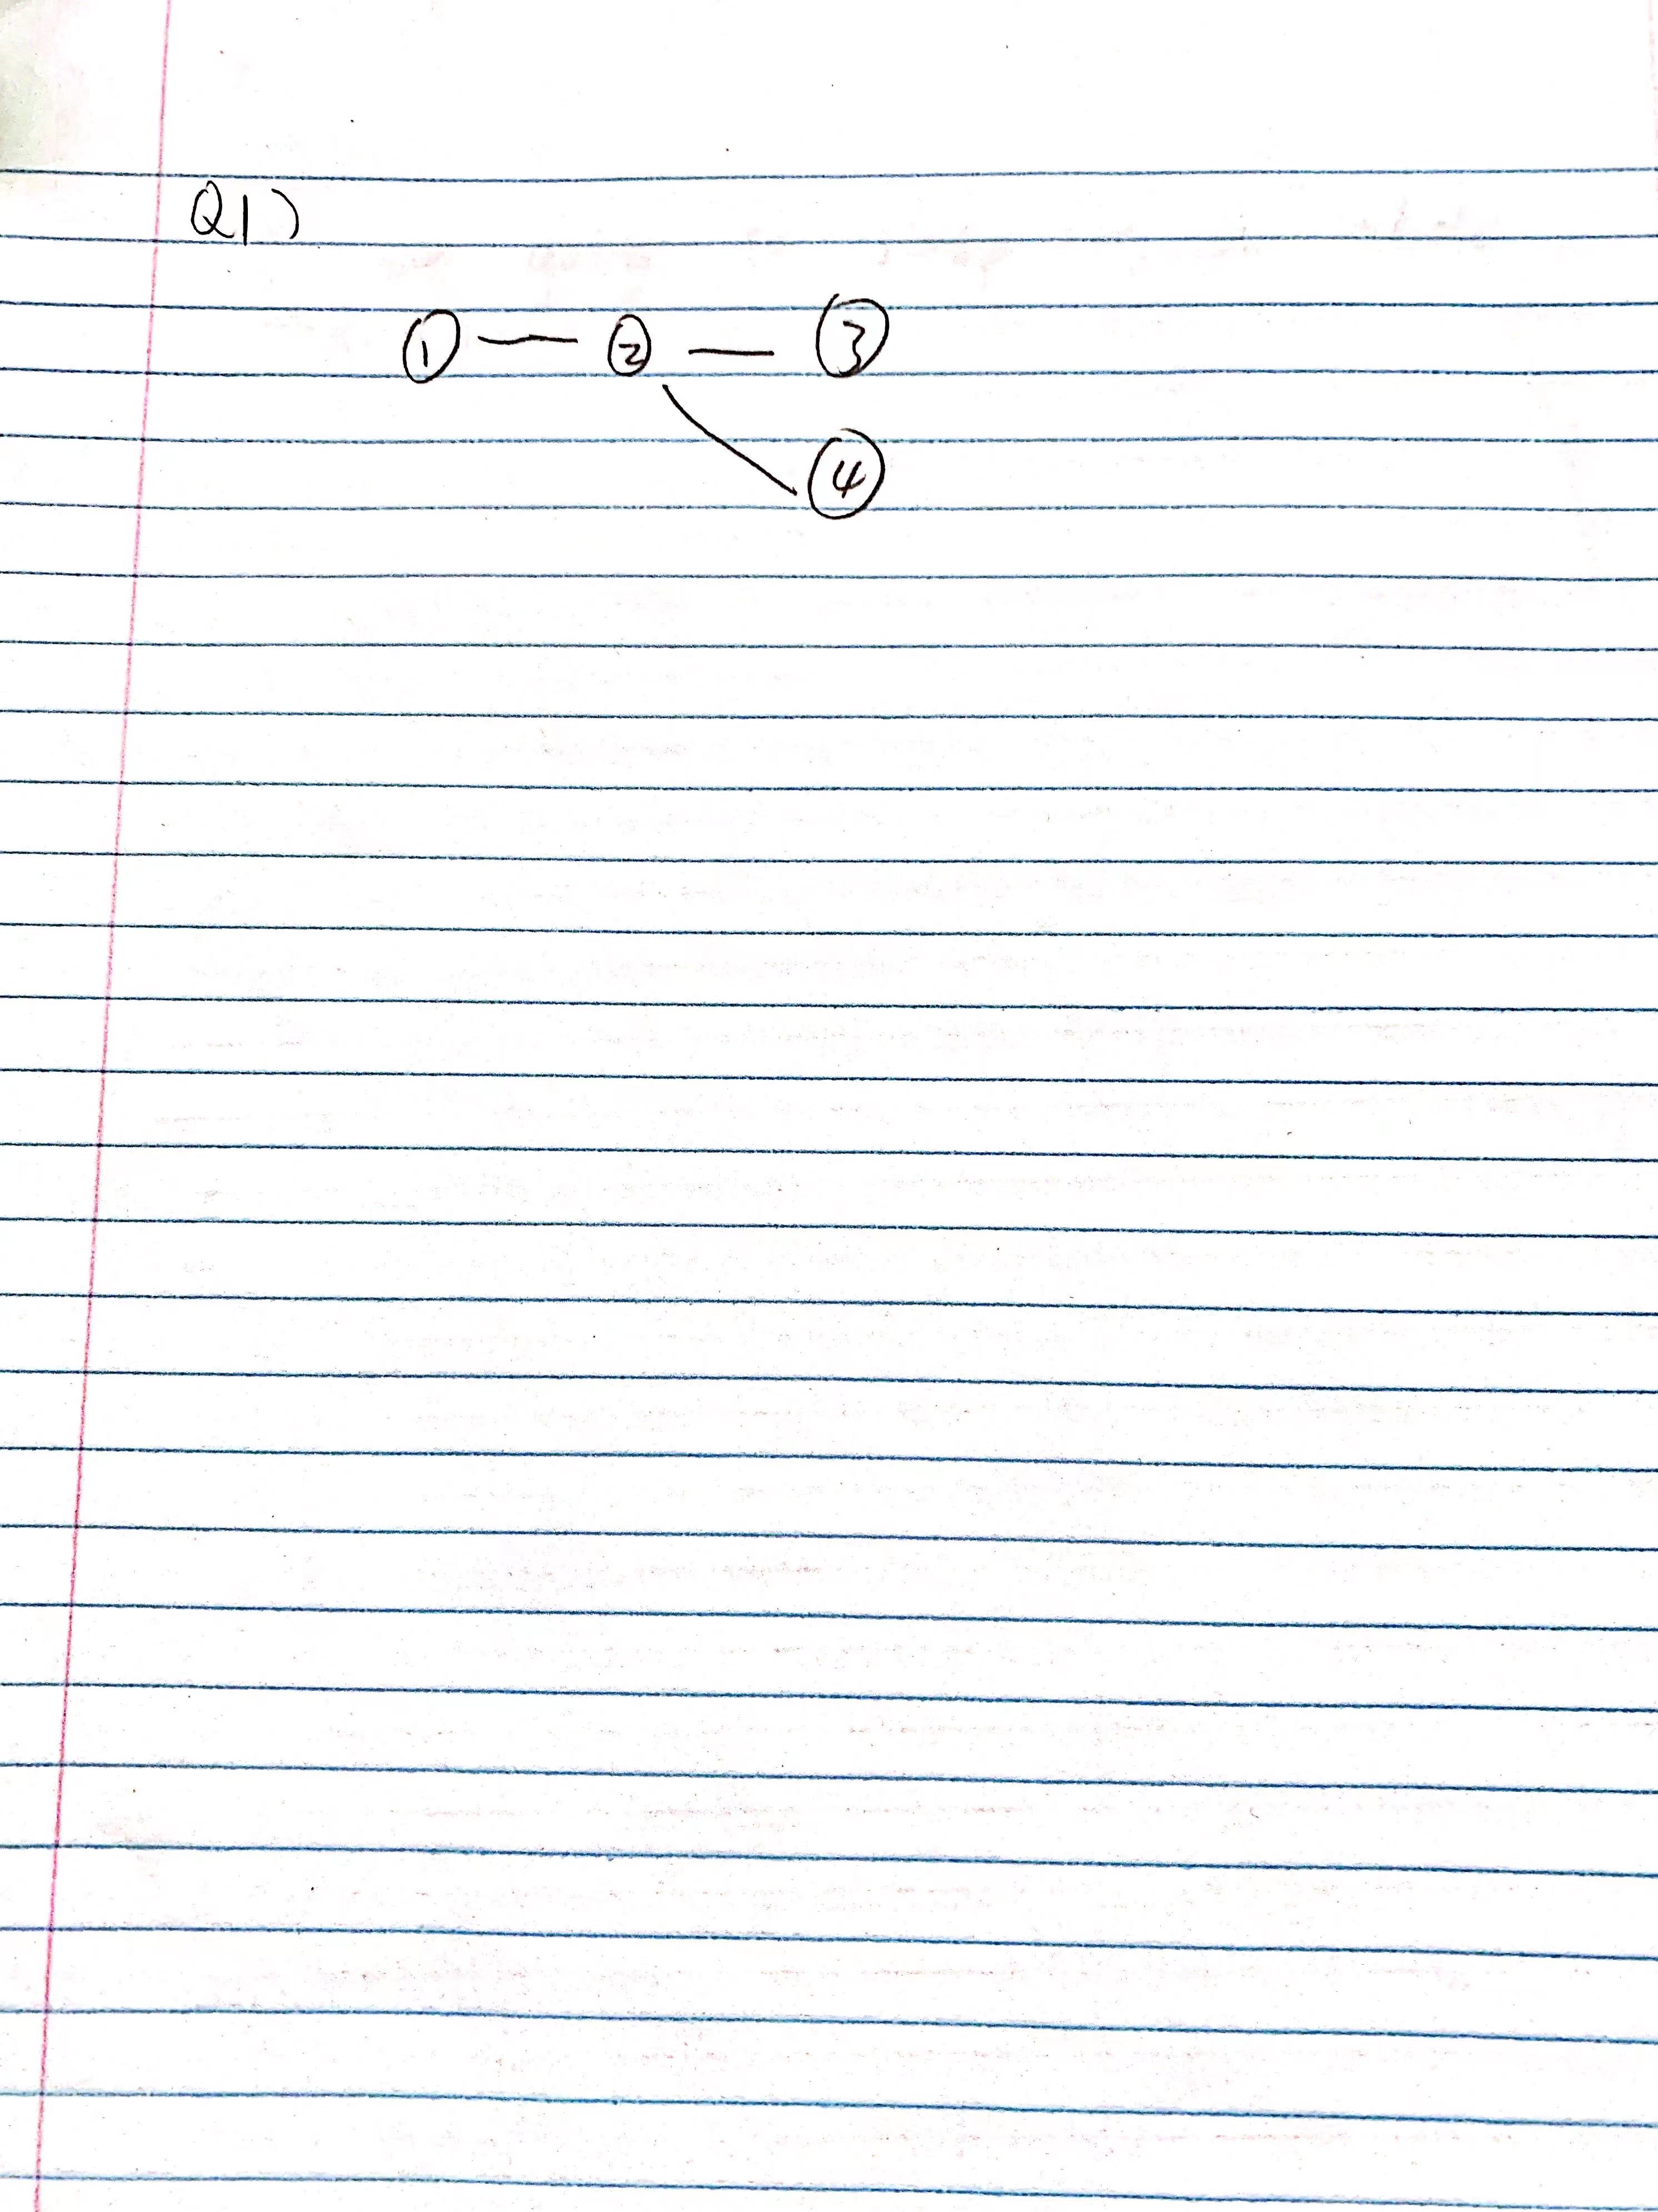 Q1)
① — ② — ③
④